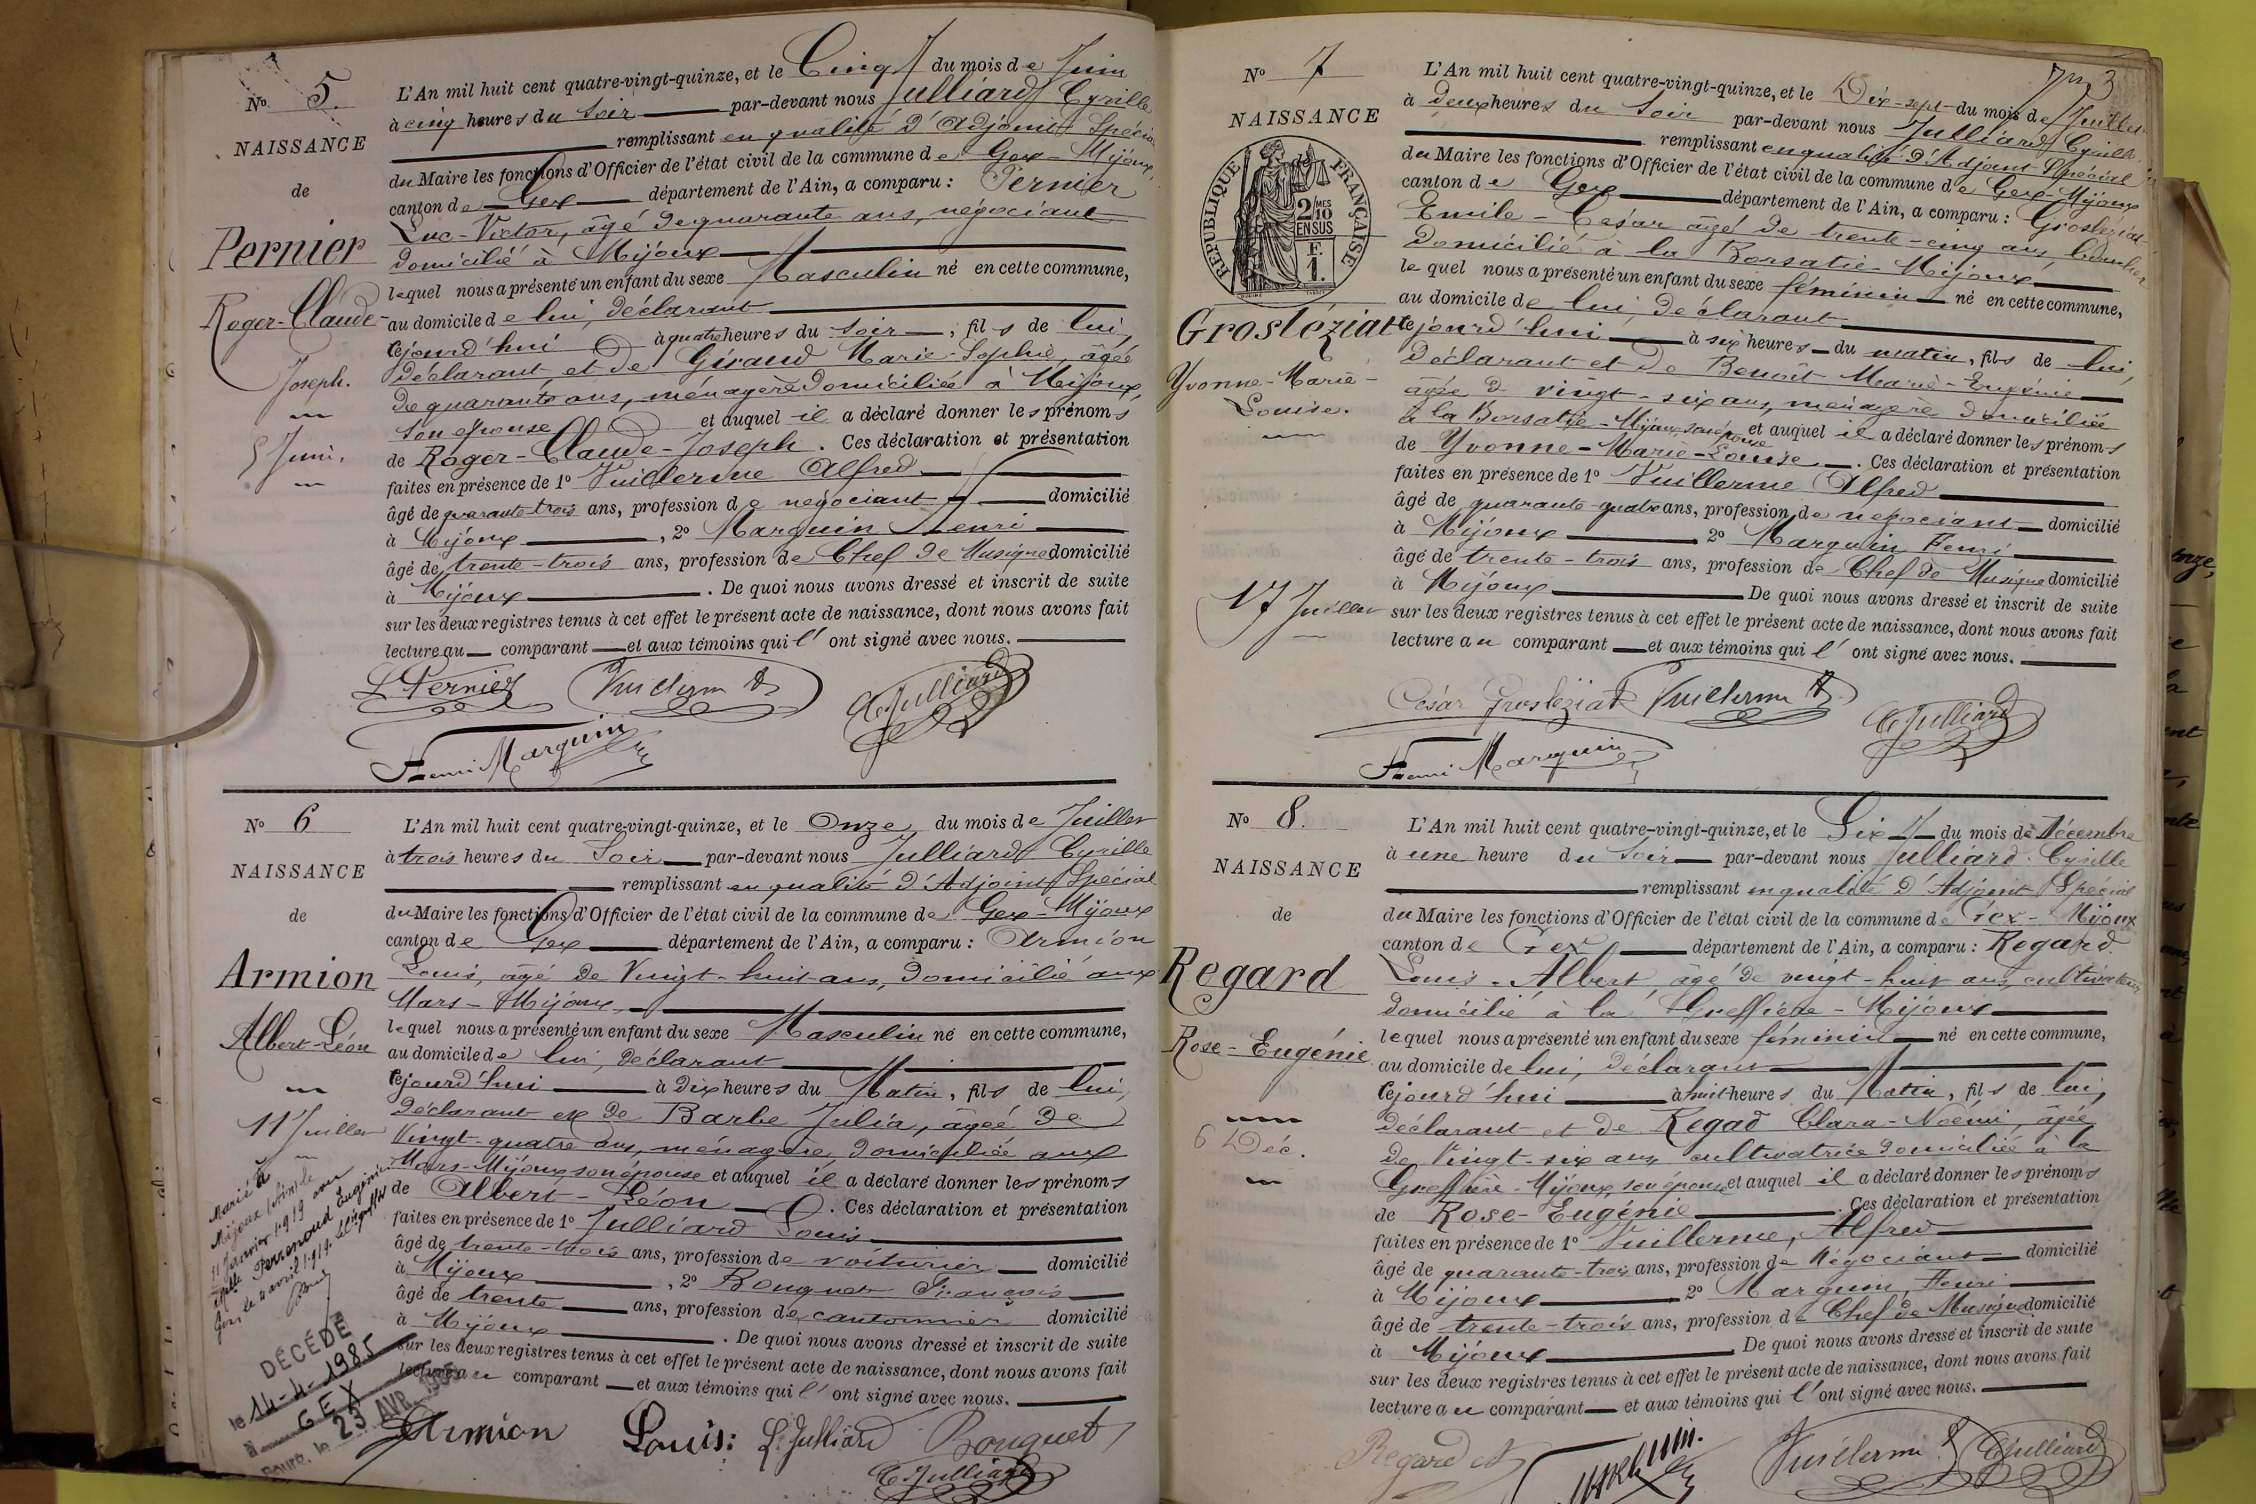 No 5.
NAISSANCE
de
Pernier
Roger-Claude-
Joseph.
5 Juin.
L'An mil huit cent quatre-vingt-quinze, et le Cinq du mois de Juin
à cinq heures du Soir par-devant nous Julliard Cyrille
remplissant en qualité d'Adjoint Spécial
du Maire les fonctions d'Officier de l'état civil de la commune de Gex-Mijoux,
canton de Gex département de l'Ain, a comparu : Pernier
Luc-Victor, âgé de quarante ans, négociant
domicilié à Mijoux
lequel nous a présenté un enfant du sexe Masculin né en cette commune,
au domicile de lui, déclarant
cejourd'hui à quatre heures du soir, fils de lui,
déclarant et de Giraud Marie-Sophie, âgée
de quarante ans, ménagère domiciliée à Mijoux,
son épouse et auquel il a déclaré donner les prénoms
de Roger-Claude-Joseph. Ces déclaration et présentation
faites en présence de 1° Vuillerme Alfred
âgé de quarante trois ans, profession de négociant domicilié
à Mijoux, 2° Marguin Henri
âgé de trente-trois ans, profession de Chef de Musique domicilié
à Mijoux. De quoi nous avons dressé et inscrit de suite
sur les deux registres tenus à cet effet le présent acte de naissance, dont nous avons fait
lecture au comparant et aux témoins qui l'ont signé avec nous.
L. Pernier Vuillerme A C. Julliard
Henri Marguin
No 6
NAISSANCE
de
Armion
Albert-Léon
11 Juillet
Marié à
Mijoux
11 Janvier 1919 avec
Perrenoud Eugénie
DÉCÉDÉ
le 14-4-1985
à GEX
23 AVR. 1985
L'An mil huit cent quatre-vingt-quinze, et le Onze du mois de Juillet
à trois heures du Soir par-devant nous Julliard Cyrille
remplissant en qualité d'Adjoint Spécial
du Maire les fonctions d'Officier de l'état civil de la commune de Gex-Mijoux
canton de Gex département de l'Ain, a comparu : Armion
Louis, âgé de Vingt-huit ans, domicilié aux
Mars-Mijoux,
lequel nous a présenté un enfant du sexe Masculin né en cette commune,
au domicile de lui, déclarant
cejourd'hui à dix heures du Matin, fils de lui,
déclarant et de Barbe Julia, âgée de
Vingt-quatre ans, ménagère, domiciliée aux
Mars-Mijoux son épouse et auquel il a déclaré donner les prénoms
de Albert-Léon. Ces déclaration et présentation
faites en présence de 1° Julliard Louis
âgé de trente-trois ans, profession de voiturier domicilié
à Mijoux, 2° Bouquet François
âgé de trente ans, profession de cantonnier domicilié
à Mijoux. De quoi nous avons dressé et inscrit de suite
sur les deux registres tenus à cet effet le présent acte de naissance, dont nous avons fait
lecture au comparant et aux témoins qui l'ont signé avec nous.
Armion Louis: L. Julliard Bouquet
C. Julliard
3
No 7
NAISSANCE
RÉPUBLIQUE FRANÇAISE
2/10 MES
EN SUS
F.
1.
Grosléziat
Yvonne-Marie-
Louise.
17 Juillet
L'An mil huit cent quatre-vingt-quinze, et le Dix-sept du mois de Juillet
à deux heures du Soir par-devant nous Julliard Cyrille
remplissant en qualité d'Adjoint Spécial
du Maire les fonctions d'Officier de l'état civil de la commune de Gex-Mijoux
canton de Gex département de l'Ain, a comparu : Grosléziat
Emile-César âgé de trente-cinq ans,
domicilié à la Borsatie-Mijoux
lequel nous a présenté un enfant du sexe féminin né en cette commune,
au domicile de lui, déclarant
cejourd'hui à six heures du matin, fils de lui,
déclarant et de Benoît Marie-Eugénie
âgée de vingt-six ans, ménagère domiciliée
à la Borsatie-Mijoux son épouse et auquel il a déclaré donner les prénoms
de Yvonne-Marie-Louise. Ces déclaration et présentation
faites en présence de 1° Vuillerme Alfred
âgé de quarante-quatre ans, profession de négociant domicilié
à Mijoux 2° Marguin Henri
âgé de trente-trois ans, profession de Chef de Musique domicilié
à Mijoux De quoi nous avons dressé et inscrit de suite
sur les deux registres tenus à cet effet le présent acte de naissance, dont nous avons fait
lecture au comparant et aux témoins qui l'ont signé avec nous.
César Grosléziat Vuillerme A. C. Julliard
Henri Marguin
No 8.
NAISSANCE
de
Regard
Rose-Eugénie
6 Déc.
L'An mil huit cent quatre-vingt-quinze, et le Six du mois de Décembre
à une heure du Soir par-devant nous Julliard Cyrille
remplissant en qualité d'Adjoint Spécial
du Maire les fonctions d'Officier de l'état civil de la commune de Gex-Mijoux
canton de Gex département de l'Ain, a comparu : Regard
Louis-Albert, âgé de vingt-huit ans, cultivateur
domicilié à la Greffière-Mijoux
lequel nous a présenté un enfant du sexe féminin né en cette commune,
au domicile de lui, déclarant
cejourd'hui à huit heures du Matin, fils de lui,
déclarant et de Regad Clara-Noémi, âgée
de Vingt-six ans cultivatrice domiciliée à la
Greffière-Mijoux, son épouse et auquel il a déclaré donner les prénoms
de Rose-Eugénie. Ces déclaration et présentation
faites en présence de 1° Vuillerme, Alfred
âgé de quarante-trois ans, profession de Négociant domicilié
à Mijoux 2° Marguin, Henri
âgé de trente-trois ans, profession de Chef de Musique domicilié
à Mijoux De quoi nous avons dressé et inscrit de suite
sur les deux registres tenus à cet effet le présent acte de naissance, dont nous avons fait
lecture au comparant et aux témoins qui l'ont signé avec nous.
Regard A Vuillerme C. Julliard